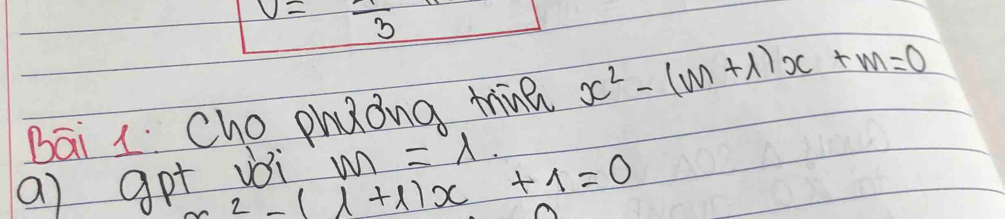 V = 3
Bài 1: Cho phương trình x² - (m+1)x + m=0
a) gpt với m = 1.
x² - (1+1)x + 1=0